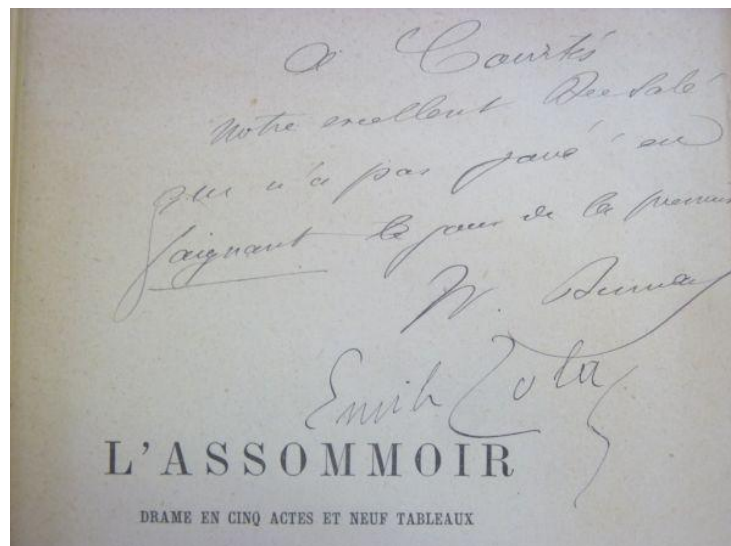 à Courtès
Notre excellent Bec Salé
qui n'a pas joué en
saignant le jour de la première
W. Busnach
Emile Zola
L'ASSOMMOIR
DRAME EN CINQ ACTES ET NEUF TABLEAUX